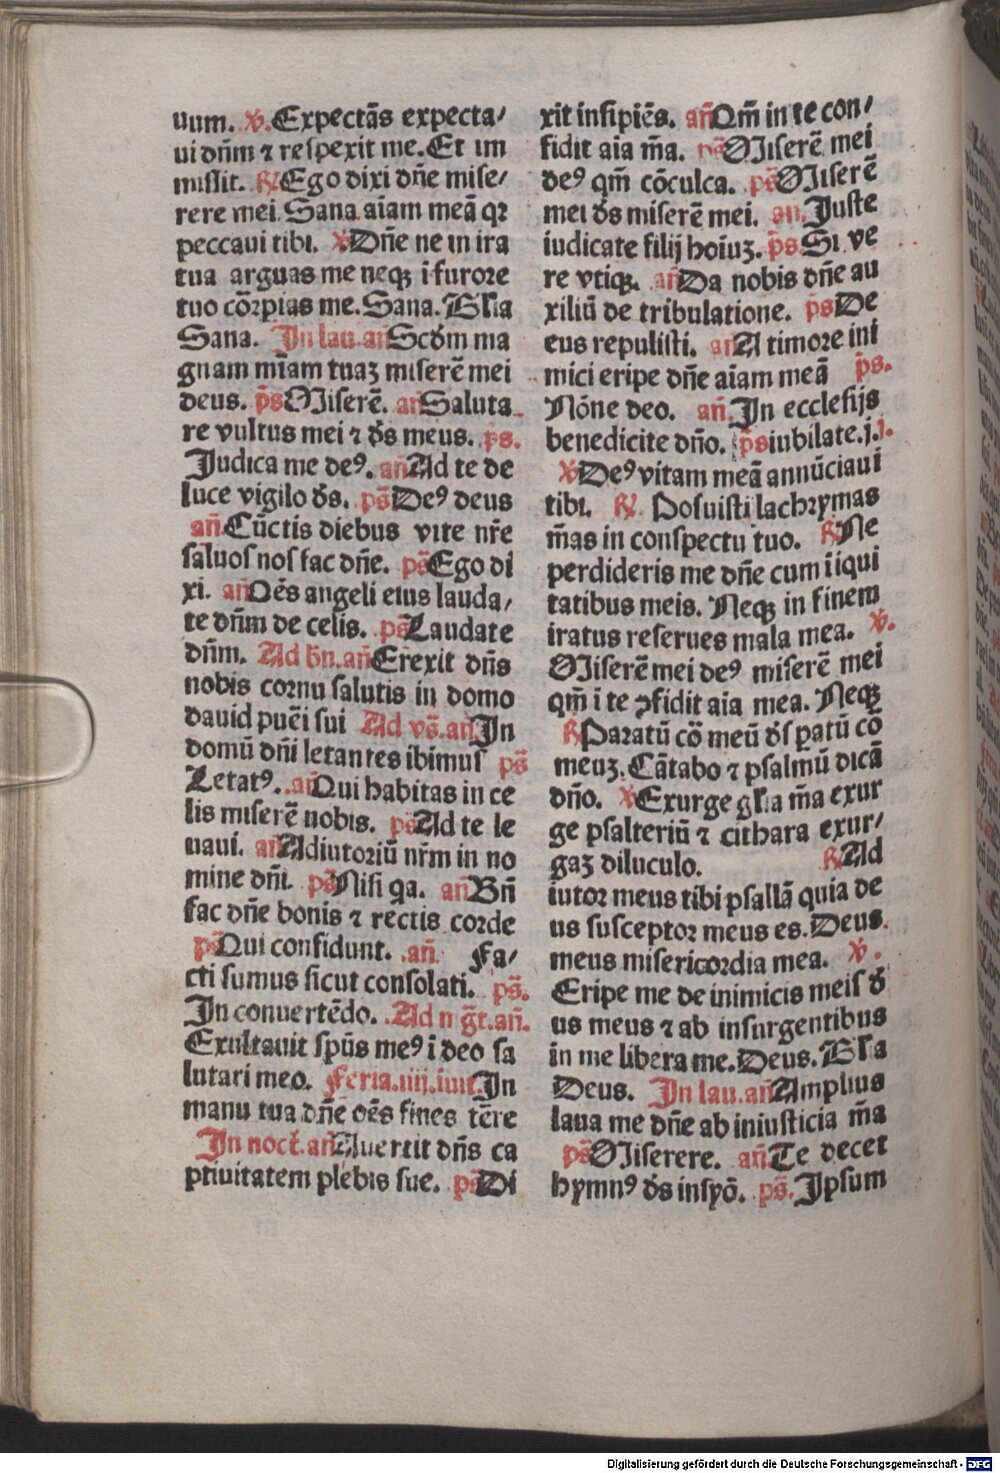 uum. ℣. Expectãs expecta/
ui dñm ⁊ respexit me. Et im
missit. ℟ Ego dixi dñe mise/
rere mei Sana aiam meã qꝛ
peccaui tibi. ℣ Dñe ne in ira
tua arguas me neqꝫ i furore
tuo cõrpias me. Sana. Gľia
Sana. In lau. añ Scďm ma
gnam mĩam tuaꝫ miserẽ mei
deus. ps̃ Miserẽ. añ Saluta
re vultus mei ⁊ ďs meus. ps̃.
Judica me deꝰ. añ Ad te de
luce vigilo ďs. ps̃ Deꝰ deus
añ Cũctis diebus vite nr̃e
saluos nos fac dñe. ps̃ Ego di
xi. añ Oẽs angeli eius lauda/
te dñm de celis. ps̃ Laudate
dñm. Ad bñ. añ Erexit dñs
nobis cornu salutis in domo
dauid puẽi sui Ad vs̃. añ In
domũ dñi letantes ibimus ps̃
Letatꝰ. añ Qui habitas in ce
lis miserẽ nobis. ps̃ Ad te le
uaui. añ Adiutoriũ nr̃m in no
mine dñi. ps̃ Nisi qa. añ Bñ
fac dñe bonis ⁊ rectis corde
ps̃ Qui confidunt. añ. Fa/
cti sumus sicut consolati. ps̃.
In conuertẽdo. Ad m̃gr̃. añ.
Exultauit spũs meꝰ i deo sa
lutari meo. Feria. iiij. inuit. In
manu tua dñe oẽs fines tẽre
In noct̃. añ Auertit dñs ca
ptiuitatem plebis sue. ps̃ Di
xit insipiẽs. añ Qm̃ in te con/
fidit aia m̃a. ps̃ Miserẽ mei
deꝰ qm̃ cõculca. ps̃ Miserẽ
mei ďs miserẽ mei. an. Juste
iudicate filij hoĩuꝫ. ps̃ Si ve
re vtiqꝫ. añ Da nobis dñe au
xiliũ de tribulatione. ps̃ De
eus repulisti. añ A timore ini
mici eripe dñe aĩam meã ps̃.
Nõne deo. añ. In ecclesijs
benedicite dño. ps̃ iubilate. j. j.
℣ Deꝰ vitam meã annũciaui
tibi. ℟. Posuisti lachrymas
m̃as in conspectu tuo. ℟ Ne
perdideris me dñe cum iiqui
tatibus meis. Neqꝫ in finem
iratus reserues mala mea. ℣.
Miserẽ mei deꝰ miserẽ mei
qm̃ i te ↄfidit aia mea. Neqꝫ
℟ Paratũ cõ meũ ďs patũ co
meuꝫ. Cãtabo ⁊ psalmũ dicã
dño. ℣ Exurge gľia m̃a exur
ge psalteriũ ⁊ cithara exur/
gaꝫ diluculo. ℟ Ad
iutor meus tibi psallã quia de
us susceptor meus es. Deus
meus misericordia mea. ℣.
Eripe me de inimicis meis ď
us meus ⁊ ab insurgentibus
in me libera me. Deus. Gľia
Deus. In lau. añ Amplius
laua me dñe ab iniusticia m̃a
ps̃ Miserere. añ Te decet
hymnꝰ ďs in syõ. ps̃. Ipsum
Digitalisierung gefördert durch die Deutsche Forschungsgemeinschaft - DFG